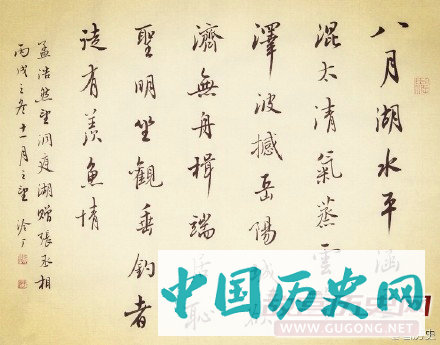 八月湖水平涵
混太清氣蒸雲
澤波撼岳陽城
濟無舟楫端居恥
聖明坐觀垂釣者
徒有羨魚情
孟浩然望洞庭湖贈張丞相
丙戌之冬十一月之望
中国历史网
WWW.GUGONG.NET